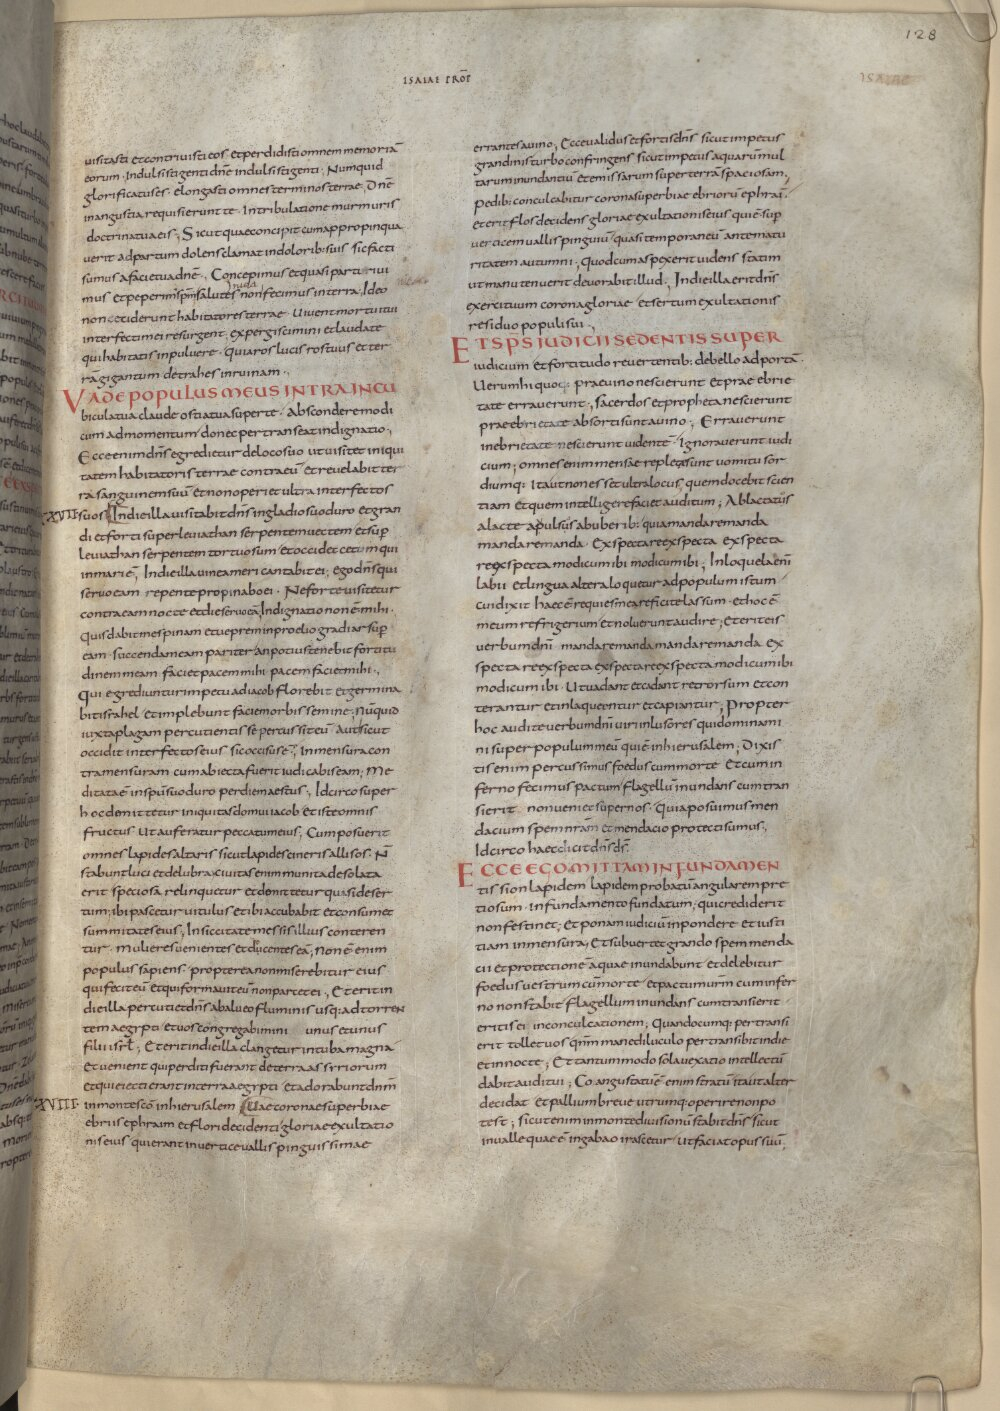 128
ISAIAE PROP̄
ISAIAE
visitasti et contrivisti eos et perdidisti omnem memoriā
eorum · Indulsisti genti dn̄e indulsisti genti · Numquid
glorificatus es · elongasti omnes terminos terrae · Dn̄e
in angustia requisierunt te · In tribulatione murmuris
doctrina tua eis ; Sicut quae concipit cum appropinqua
verit ad partum dolens clamat in dolorib: suis sic facti
sumus a facie tua dn̄e . Concepimus et quasi parturivi
mus et peperim̄ sp̄m salutes non fecimus in terra · Ideo
non ceciderunt habitatores terrae · Vivent mortui tui
interfecti mei resurgent · expergiscimini et laudate
qui habitatis in pulvere · quia ros lucis ros tuus et ter
rā gigantum detrahes in ruinam .
VADE POPULUS MEUS INTRA IN CU
bicula tua claude ostia tua super te · Abscondere modi
cum ad momentum donec pertranseat indignatio ;
Ecce enim dn̄s egredietur de loco suo ut visitet iniqui
tatem habitatoris terrae contra eū et revelabit ter
ra sanguinem suū et non operiet ultra interfectos
XVII suos In die illa visitabit dn̄s in gladio suo duro et gran
di et forti super leviathan serpentem vectem et sup̄
leviathan serpentem tortuosum et occidet cetum qui
in mari ē ; In die illa vinea meri cantabit ei ; ego dn̄s qui
servo eam repente propinabo ei · Ne forte visitetur
contra eam nocte et die servo eā · Indignatio non ē mihi ·
quis dabit me spinam et veprem in proelio gradiar sup̄
eam · succendam eam pariter an potius tenebit fortitu
dinem meam faciet pacem mihi pacem faciet mihi .
Qui egrediuntur impetu ad iacob florebit et germina
bit isrāhel et implebunt faciem orbis semine ; Nūquid
iuxta plagam percutientis se percussit eū Aut sicut
occidit interfectos eius sic occisus ē ; In mensura con
tra mensuram cum abiecta fuerit iudicabis eam ; Me
ditatā ē in sp̄u suo duro per diem aestus ; Idcirco super
hoc demittetur iniquitas domui iacob et iste omnis
fructus ut auferatur peccatum eius ; Cum posuerit
omnes lapides altaris sicut lapides cineris allisos · N̄
stabunt luci et delubra ; civitas enim munita desolata
erit speciosa relinquetur et demittetur quasi deser
tum ; ibi pascetur vitulus et ibi accubabit et consumet
summitates eius ; In siccitate messis illius conteren
tur · mulieres venientes et docentes eā ; non ē enim
populus sapiens · propterea non miserebitur eius
qui fecit eū et qui formavit eū non parcet ei ; et erit in
die illa percutiet dn̄s ab alveo fluminis usq: ad torren
tem aegypti et vos congregabimini unus et unus
filii isrl̄ ; Et erit in die illa clangetur in tuba magna
et venient qui perditi fuerant de terra assyriorum
et qui eiecti erant in terra aegypti et adorabunt dn̄m
XVIII in monte sc̄o in hierusalem Vae coronae superbiae
ebriis ephraim et flori decidenti gloriae exultatio
nis eius qui erant in vertice vallis pinguissimae
errantes a vino ; Ecce validus et fortis dn̄s sicut impetus
grandinis turbo confringens sicut impetus aquarū mul
tarum inundantiū et emissarum super terrā spaciosam ;
pedib: conculcabitur corona superbiae ebriorū ephraī ·
et erit flos decidens gloriae exultationis eius qui ē sup̄
verticem vallis pinguiū quasi temporaneū ante matu
ritatem autumni ; quod cum aspexerit videns statim
ut manu tenuerit devorabit illud ; In die illa erit dn̄s
exercituum corona gloriae et sertum exultationis
residuo populi sui .
ET SPS IUDICII SEDENTIS SUPER
iudicium et fortitudo revertentib: de bello ad portā ·
Verum hi quoq: prae vino nescierunt et prae ebrie
tate erraverunt ; sacerdos et propheta nescierunt
prae ebrietate absorti sunt a vino ; Erraverunt
in ebrietate nescierunt videntē · Ignoraverunt iudi
cium ; omnes enim mensae repletae sunt vomitu sor
diumq: ita ut non esset ultra locus quem docebit scien
tiam et quem intellegere faciet auditum ; Ablactatūs
a lacte apulsus ab uberib: quia manda remanda
manda remanda · Exspecta reexspecta exspecta
reexspecta modicum ibi modicum ibi ; In loquela enī
labii et lingua altera loquetur ad populum istum
cui dixit haec ē requies mea reficite lassum · et hoc ē
meum refrigerium et noluerunt audire ; et erit eis
verbum dn̄i manda remanda manda remanda ex
specta reexspecta exspecta reexspecta modicum ibi
modicum ibi Ut vadant et cadant retrorsum et con
terantur et inlaqueentur et capiantur ; Propter
hoc audite verbum dn̄i viri inlusores qui dominami
ni super populum meū qui ē in hierusalem ; Dixis
tis enim percussimus foedus cum morte Et cum in
ferno fecimus pactum flagellū inundans cum tran
sierit non veniet super nos Quia posuimus men
dacium spem nr̄am et mendacio protecti sumus ;
Idcirco haec dicit dn̄s ds̄
ECCE EGO MITTAM IN FUNDAMEN
tis sion lapidem lapidem probatū angularem pre
tiosum in fundamento fundatum ; qui crediderit
non festinet ; et ponam iudiciū in pondere et iusti
tiam in mensura ; Et subvertet grando spem menda
cii et protectionē aquae inundabunt et delebitur
foedus vestrum cū morte et pactum vr̄m cum infer
no non stabit flagellum inundans cum transierit
eritis ei in conculcationem ; Quandocumq: pertransi
erit tollet vos qn̄m mane diluculo pertransibit in die
et in nocte ; Et tantummodo sola vexatio intellectū
dabit auditui ; Coangustatū ē enim stratū ita ut alter
decidat et pallium breve utrumq: operire non po
test ; sicut enim in monte divisionū stabit dn̄s sicut
in valle quae ē in gabao irascetur Ut faciat opus suū